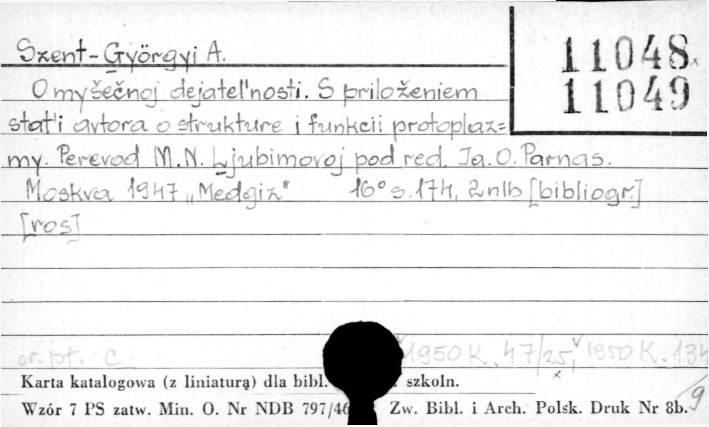 Szent-Györgyi A.
11048
11049
O myšečnoj dejatel'nosti. S priloženiem
stat'i avtora o strukture i funkcii protoplaz=
my. Perevod M.N. Ljubimovoj pod red. Ja.O. Parnas.
Moskva 1947 „Medgiz" 16° s. 174, 2nlb [bibliogr.]
[ros]
or. pt. C 1950 K. 47/25, 1950 K. 134
Karta katalogowa (z liniaturą) dla bibl. szkoln.
Wzór 7 PS zatw. Min. O. Nr NDB 797/46 Zw. Bibl. i Arch. Polsk. Druk Nr 8b.